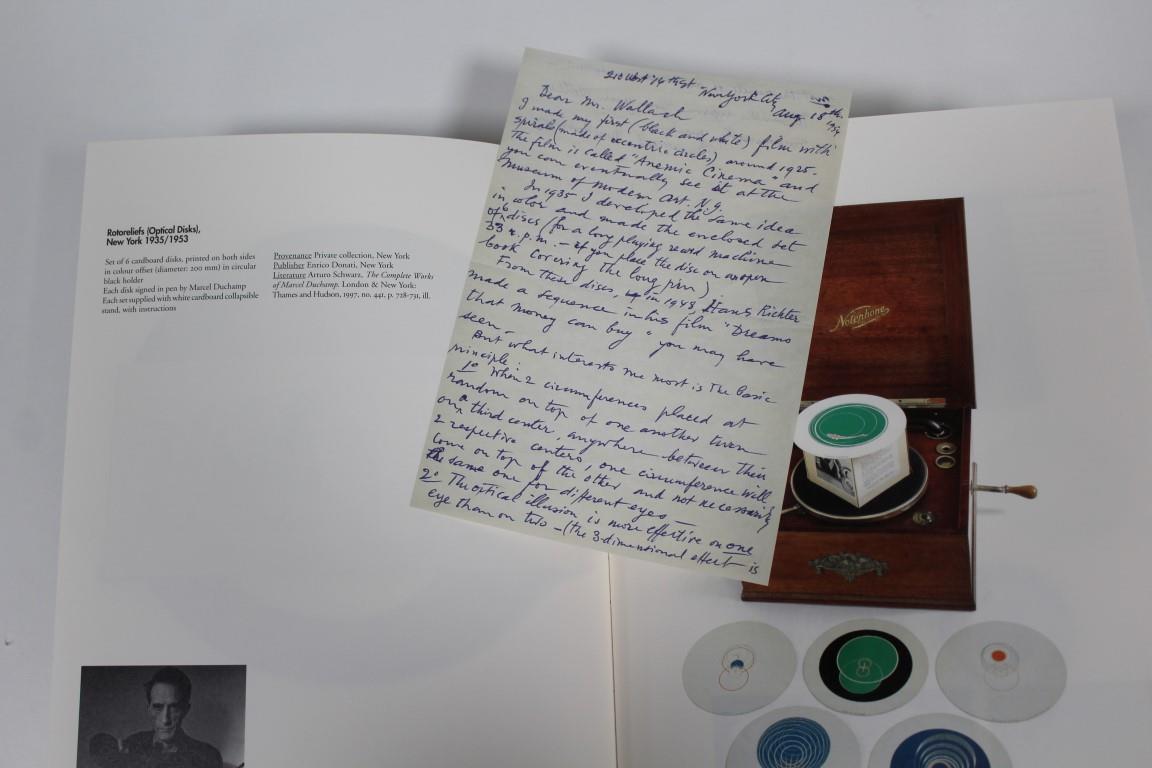 Rotoreliefs (Optical Disks),
New York 1935/1953
Set of 6 cardboard disks, printed on both sides
in colour offset (diameter: 200 mm) in circular
black holder
Each disk signed in pen by Marcel Duchamp
Each set supplied with white cardboard collapsible
stand, with instructions
Provenance Private collection, New York
Publisher Enrico Donati, New York
Literature Arturo Schwarz, The Complete Works
of Marcel Duchamp. London & New York:
Thames and Hudson, 1997, no. 441, p. 728-731, ill.
210 West 14th St
New York City
Aug 18th
Dear Mr. Wallach
I made my first (black and white) film with
spirals (made of eccentric circles) around 1925.
The film is called "Anemic Cinema" and
you can eventually see it at the
Museum of Modern Art. N.Y.
In 1935 I developed the same idea
in color and made the enclosed set
of 6 discs (for a long playing record machine
33 r.p.m. — if you place the disc on an open
book covering the long pin)
From these discs, in 1943, Hans Richter
made a sequence in his film "Dreams
that money can buy" you may have
seen —
But what interests me most is the basic
principle:
1º When 2 circumferences placed at
random on top of one another turn
on a third center, anywhere between their
2 respective centers, one circumference will
come on top of the other and not necessarily
the same one for different eyes —
2º The optical illusion is more effective on one
eye than on two — (the 3-dimensional effect is
Notephone